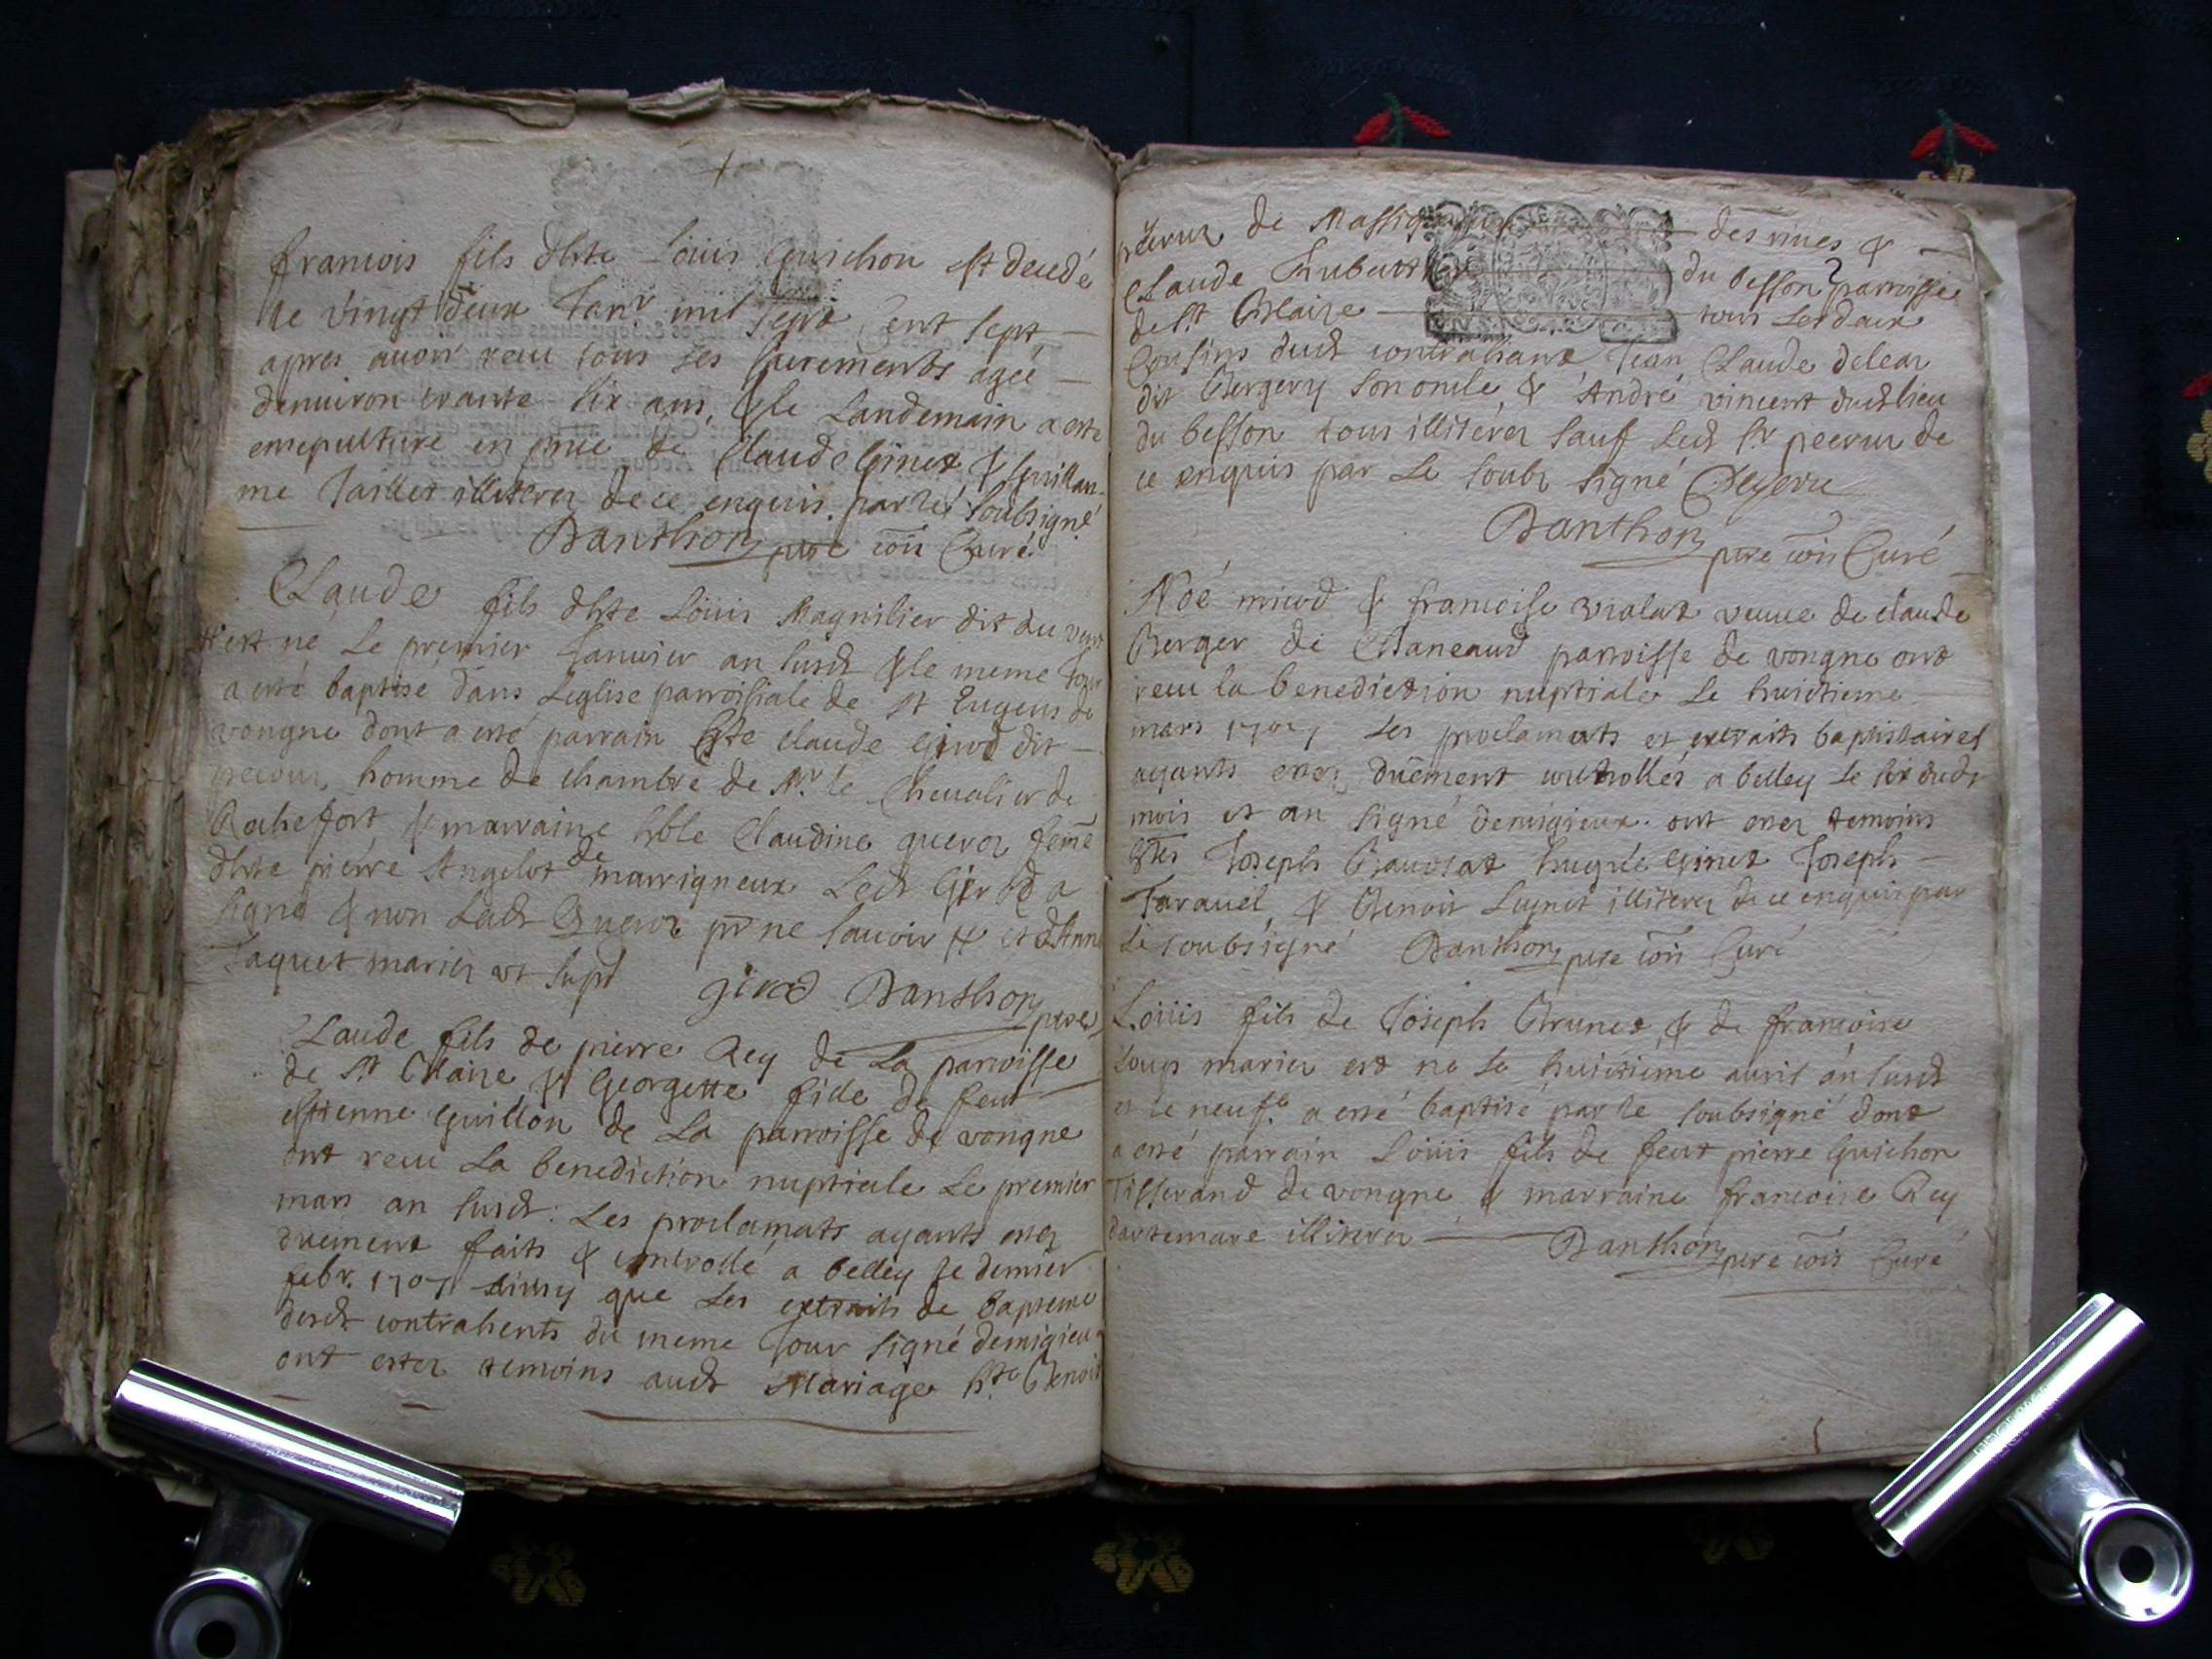 francois fils dhte Loüis Guichon est decedé
le vingt deux Janr mil sept cent sept
apres auoir receu tous ses sacrements agéé
denuiron trante six ans, & le landemain a esté
ensepulturé en pnce de Claude Ginet & Guillau-
me Taillet illiterez de ce enquis par le soubsigné
Danthon ptre con Curé
Claude fils dhte Loüis Magnilier dit du
est né le premier Januier an susdt & le meme Jour
a esté baptisé dans Leglise parroissiale de St Eugens de
vongne dont a esté parrain hte Claude Girod dit
homme de chambre de Mr le Cheualier de
Rochefort & marraine hble Claudine femē
dhte pierre Angelot de marrigneux Ledt Girod a
signé & non Ladt pr ne sauoir & et dAnne
Jaquet mariez vt supt Girod Danthon ptre
Claude fils de pierre Rey de La parroisse
de St Blaize & Georgette fille de feut
estienne Guillon de La parroisse de vongne
ont receu La benediction nuptiale Le premier
mars an susdt. Les proclamats ayants estez
duement faits & controllé a belley le dernier
febr. 1707 ainsy que Les extraits de bapteme
desdt contrahents du meme Jour signé demigieu
ont estez temoins audt Mariage hte Benoit
de des rues &
Claude du besson parroisse
de St Blaize tous Les deux
Cousins dudt contrahant, Jean Claude delear
dit Bergery son oncle, & André vincent dudt lieu
du besson tous illiterez sauf Ledt Sr de
ce enquis par Le soubz signé
Danthon ptre con Curé
Noé & francoise vialat veuue de claude
Berger de Chaneaud parroisse de vongne ont
receu la benediction nuptiale Le huictieme
mars 1707, Les proclamats et extraits baptistaires
ayants estez duëment controllés a belley le six dudt
mois et an signé demigieux ont estez temoins
htes Joseph hugué Ginet Joseph
Tarauel, & Benoit illiterez de ce enquis par
Le soubsigné Danthon ptre con Curé
Loüis fils de Joseph Brunet, & de francoise
Loup mariez est né Le huictieme auril an susdt
et le neufe a esté baptisé par le soubsigné dont
a esté parrain Loüis fils de feut pierre Guichon
Tisserand de vongne & marraine francoise Rey
dartemare illiterez Danthon ptre con Curé